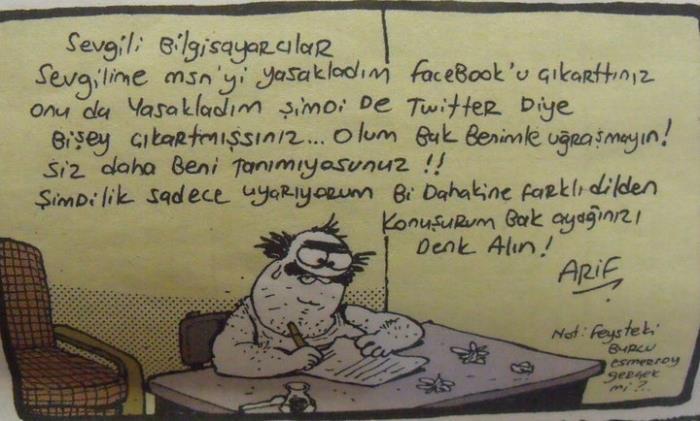 Sevgili Bilgisayarcılar
Sevgilime msn'yi yasakladım faceBook'u çıkarttınız
onu da Yasakladım şimdi de Twitter Diye
Bişey çıkartmışsınız... Olum Bak Benimle uğraşmayın!
Siz daha Beni Tanımıyosunuz !!
Şimdilik sadece uyarıyorum Bi Dahakine farklı dilden
Konuşurum Bak ayağınızı
Denk Alın!
ARİF
Not: feysteki
BURCU
esmersoy
gerçek
mi?..